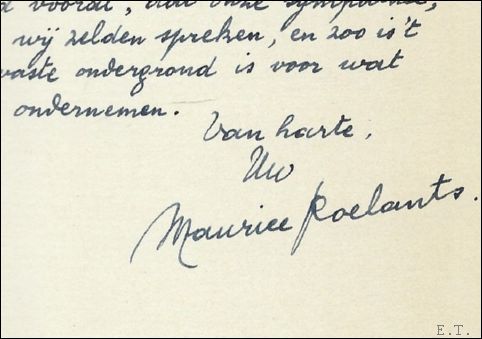 vooral, dat onze sympathie,
wij zelden spreken, en zoo is 't
vaste ondergrond is voor wat
ondernemen.
Van harte,
Uw
Maurice Roelants.
E.T.